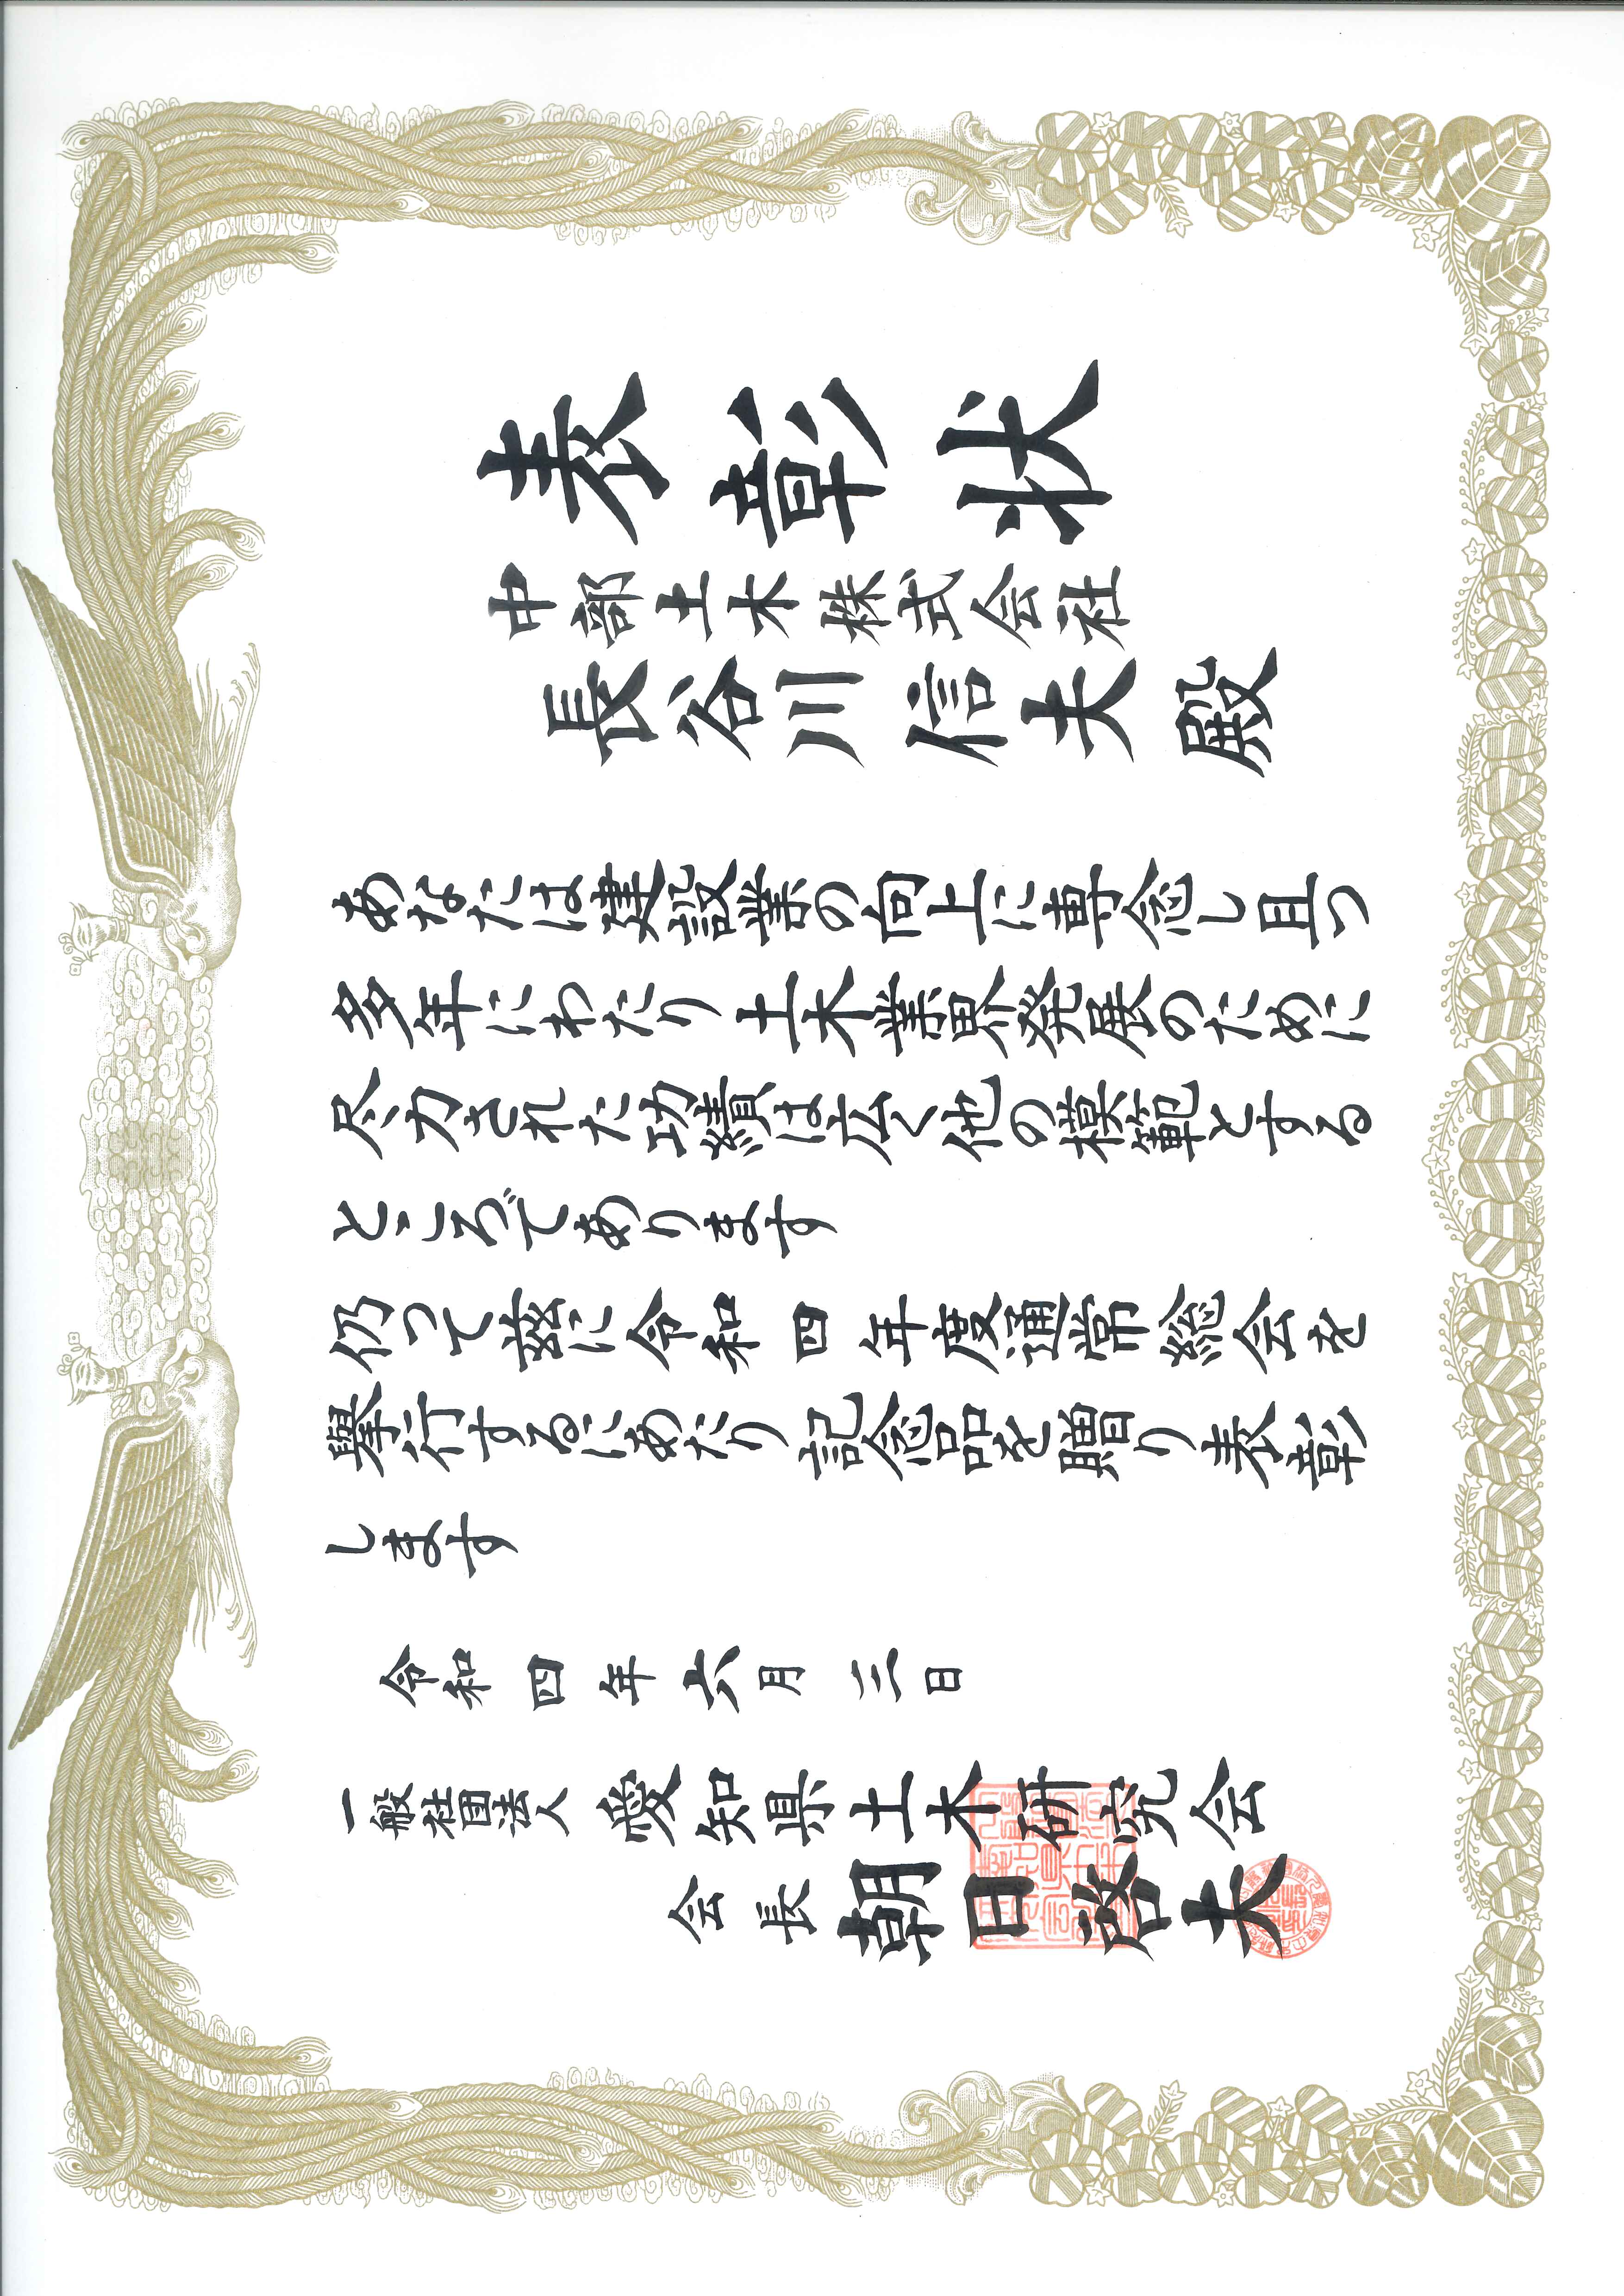 表彰状
中部土木株式会社
長谷川信夫殿
あなたは建設業の向上に専念し且つ
多年にわたり土木業界発展のために
尽力された功績は広く他の模範とする
ところであります
仍つて茲に令和四年度通常総会を
擧行するにあたり記念品を贈り表彰
します
令和四年六月三日
一般社団法人愛知県土木研究会
会長朝日啓夫